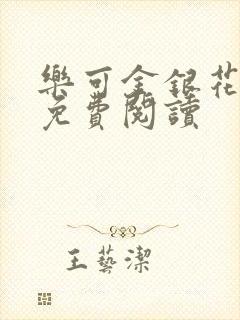 樂可金銀花
免費閱讀
王藝潔